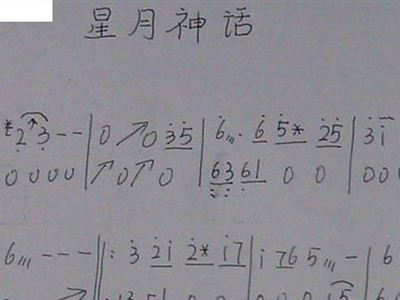 星月神话
*2 3 - - | 0 ↗ 0 3 5 | 6,,, · 6 5* 2 5 | 3 i
0 0 0 0 | ↗ 0 ↗ 0 | 6 3 6 1 0 0 | 0 0
6,,, - - - ‖: 3 2 i 2* i 7 | i 7 6 5,,, - | 6